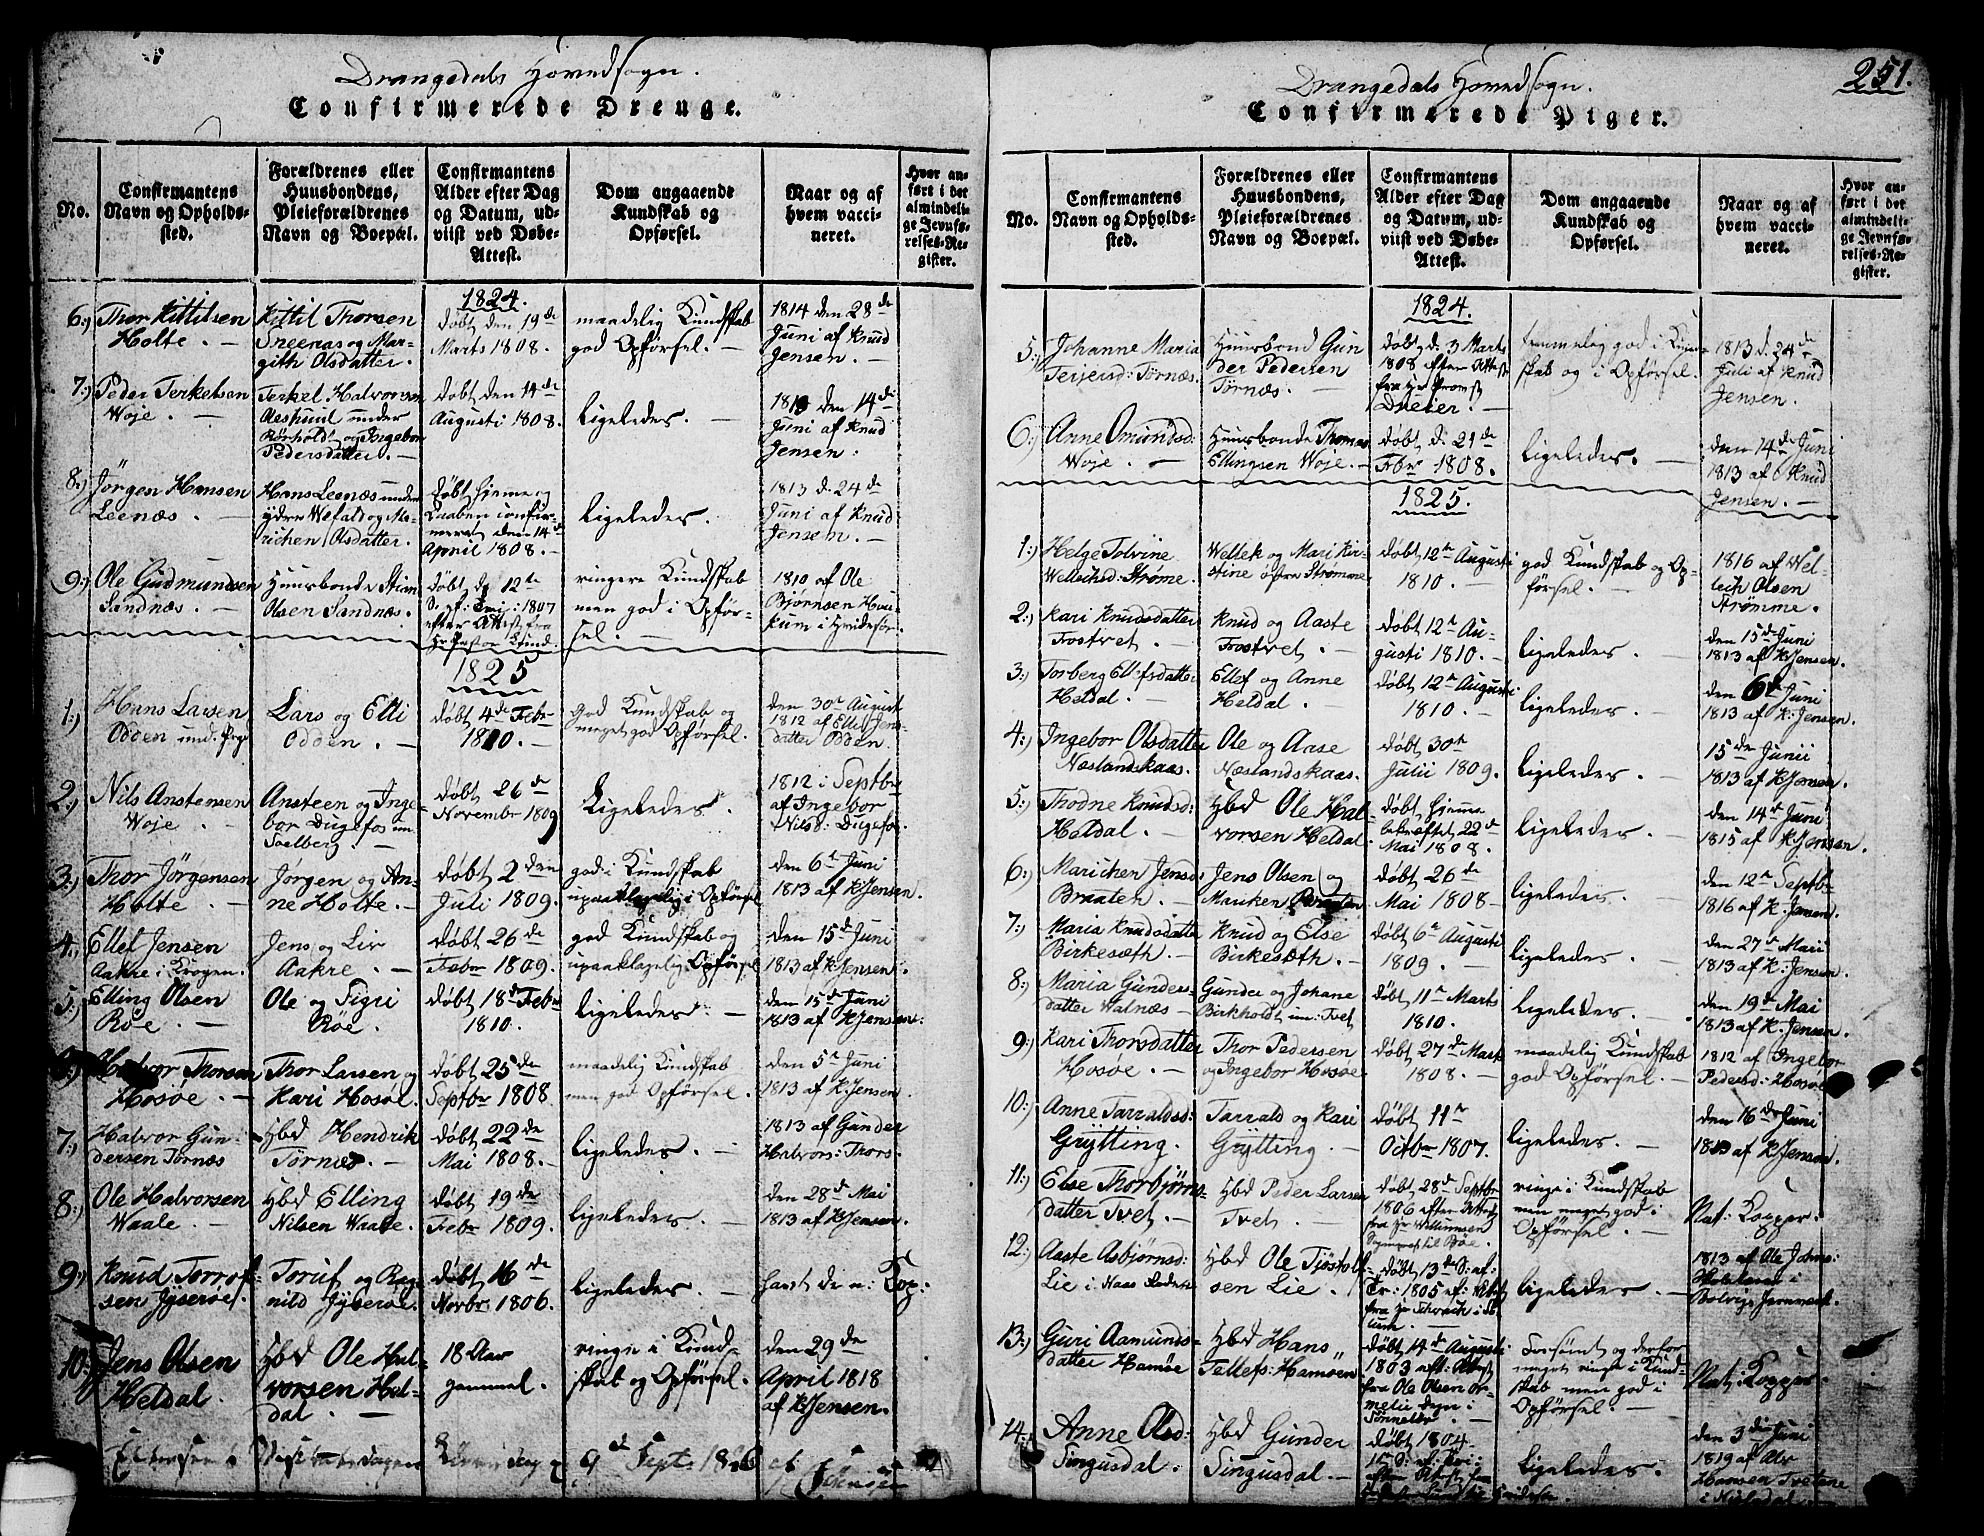 Drangedals Hovedsogn.
Confirmerede Drenge.
No.
Confirmantens
Navn og Opholds-
sted.
Forældrenes eller
Huusbondens,
Pleieforældrenes
Navn og Boepæl.
Confirmantens
Alder efter Dag
og Datum, ud-
viist ved Døbe-
Attest.
Dom angaaende
Kundskab og
Opførsel.
Naar og af
hvem vacci-
neret.
Hvor an-
ført i det
almindeli-
ge Jevnfø-
relses-Re-
gister.
1824.
6.) Thor Kittilsen
Holte. —
Kittil Thorsen
Sneenas og Mar-
gith Olsdatter.
døbt den 19de
Marts 1808.
maadelig Kundskab
god Opførsel. —
1814 den 28de
Juni af Knud
Jensen. —
7.) Peder Terkelsen
Woje. —
Terkel Halvorsen
Aeshuul under
Rörholdt og Ingebor
Pedersdatter. —
Døbt den 14de
Augusti 1808.
ligeledes. —
1813 den 14de
Juni af Knud
Jensen.
8.) Jörgen Hansen
Leenæs. —
Hans Leenæs under
ydre Wefald og Ma-
richen Olsdatter.
døbt hjemme og
Daaben confir-
meret den 14de
April 1808. —
ligeledes.
1813 d. 24de
Juni af Knud
Jensen. —
9.) Ole Gudmundsen
Sandnæs. —
Huusbonde Stian
Olsen Sandnæs.
døbt dg 12te
S. ef: Tri: 1807
efter Attest fra
Hr Pastor Lund.
ringere Kundskab
men god i Opfør-
sel. —
1810 af Ole
Bjørnsen Hou-
kum i Hvidesöe.
1825
1.) Hans Larsen
Odden
Lars og Elli
Odden. —
døbt 4de Febr
1810. —
god Kundskab og
meget god Opførsel.
den 30te August
1812 af Elli Jens-
datter Odden.
2.) Nils Anstensen
Woje. —
Ansteen og Inge-
bor Dugefos un
Soelberg —
døbt 26de
Novembr 1809
Ligeledes.
1812 i Septbr
af Ingebor
Nilsd: Dugefos.
3.) Thor Jörgensen
Holte. —
Jørgen og An-
ne Holte. —
døbt 2den
Juli 1809.
god i Kundskab
upaaklagelig i Opførsel
den 6te Juni
1813 af K Jensen.
4. Ellef Jensen
Aakre i Krogen.
Jens og Liv
Aakre. —
døbt 26de
Febr 1809.
god Kundskab og
upaaklagelig Opførsel
den 15de Juni
1813 af K Jensen.
5.) Elling Olsen
Röe. —
Ole og Sigri
Röe.
døbt 18de Febr
1810.
ligeledes. —
den 15de Juni
1813 af K Jensen.
Halvor Thorsen
Hosöe. —
Thor Larsen og
Kari Hosöe.
døbt 25de
Septbr 1808.
maadelig Kundskab
men god Opførsel.
den 5te Juni
1813 af K Jensen.
7.) Halvor Gun-
dersen Tornæs
Hbd Hendrik
Tørnæs. —
døbt 22de
Mai 1808. —
ligeledes. —
1813 af Gunder
Halvors: Thors.
8.) Ole Halvorsen
Waale. —
Hbd Elling
Nilsen Waale.
døbt 19de
Febr 1809.
ligeledes. —
den 28de Mai
1813 af K Jensen.
9.) Knud Torrof-
sen Jyseröe.
Toruf og Rag-
nild Jyseröe.
døbt 16de
Novbr 1806.
ligeledes. —
havt de n: Kop:
10.) Jens Olsen
Heldal.
Hbd Ole Hal-
vorsen Hel-
dal. —
18 Aar
gammel.
ringe i Kund-
skab og Opførsel.
den 29de
April 1818
af K Jensen.
9de Septr 1826
251.
Drangedals Hovedsogn.
Confirmerede Piger.
No.
Confirmantens
Navn og Opholds-
sted.
Forældrenes eller
Huusbondens,
Pleieforældrenes
Navn og Boepæl.
Confirmantens
Alder efter Dag
og Datum, ud-
viist ved Døbe-
Attest.
Dom angaaende
Kundskab og
Opførsel.
Naar og af
hvem vacci-
neret.
Hvor an-
ført i det
almindeli-
ge Jevnfø-
relses-Re-
gister.
1824.
5.) Johanne Maria
Terjersd: Tørnæs.
Huusbond Gun
der Pedersen
Tørnæs. —
døbt d: 3 Marts
1808 efter Attest
fra Hr Promst
Dreier. —
temmelig god i Kund-
skab og i Opførsel.
1813 d. 24de
Juli af Knud
Jensen.
6.) Anne Omundsd:
Woje. —
Huusbonde Thomas
Ellingsen Woje. —
døbt d: 21de
Febr 1808.
ligeledes. —
den 14de Juni
1813 af Knud
Jensen. —
1825.
1.) Helge Tolvine
Welleiksd: Strøme.
Wellek og Mari Kir-
stine østre Strømme
døbt 12te Augusti
1810. —
god Kundskab og Op-
førsel. —
1816 af Wel-
leich Olsen
Strømme.
2.) Kari Knudsdatter
Trostvet. —
Knud og Aaste
Trostvet. —
døbt 12te Au-
gusti 1810. —
ligeledes. —
den 15de Juni
1813 af K. Jensen.
3.) Torberg Ellefsdatter
Heldal. —
Ellef og Anne
Heldal. —
døbt 12te Augusti
1810. —
ligeledes. —
den 6te Juni
1813 af K: Jensen.
4.) Ingebor Olsdatter
Næslandskaas.
Ole og Aase
Næslandskaas.
døbt 30te
Julii 1809.
ligeledes. —
15de Junii
1813 af K Jensen.
5.) Thodne Knudsd:
Heldal. —
Hbd Ole Hal-
vorsen Heldal.
døbt hjemme
bekræftet 22de
Mai 1808. —
ligeledes. —
den 14de Juni
1815 af K Jensen.
6.) Marichen Jensd:
Braaten. —
Jens Olsen og
Mariken Braaten
døbt 26de
Mai 1808 —
ligeledes. —
den 12te Septbr
1816 af K. Jensen.
7.) Maria Knudsdatter
Birkesæth. —
Knud og Else
Birkesæth. —
døbt 6te Augusti
1809. —
ligeledes. —
den 27de Mai
1813 af K: Jensen.
8.) Maria Gunders-
datter Walnæs. —
Gunder og Johane
Birkholdt un: Tvet
døbt 11te Marts
1810. —
ligeledes. —
den 19de Mai
1813 af K. Jensen.
9.) Kari Thorsdatter
Hosøe. —
Thor Pedersen
og Ingebor Hosøe.
døbt 27de Marts
1808. —
maadelig Kundskab
god Opførsel. —
1812 af Ingebor
Pedersd: Hosöe
10.) Anne Tarraldsd:
Grytting.
Tarrald og Kari
Grytting. —
døbt 11te
Octbr 1807.
ligeledes. —
den 16de Juni
1813 af K Jensen.
11.) Else Thorbjørns-
datter Tvet. —
Hbd Peder Larsen
Tvet. —
døbt 28de Septbr
1806 efter Attest
fra Hr Wellumsen
til Böe.
ringe i Kundskab
men meget god i
Opførsel. —
Nat: Kopper:
12.) Aaste Asbjørnsd:
Lie i Naas
Hbd Ole Tjøstolf-
sen Lie.
døbt 13de S: ef:
Tr: 1805 ef: Attest
fra Hr Schweich i Sö-
lum. —
ligeledes. —
1813 af Ole Johns:
i
Bolvigs Jernværk.
13.) Guri Aamunds-
datter Hamöe
Hbd Hans
Tellefs: Hamöen
døbt 14de Augusti
1803 eft: Attest
fra Ole Olsen
Degn i
forsömt og derfor
meget ringe i Kund-
skab men god i
Opførsel. —
Nat: Kopper.
14. Anne Olsd:
Singusdal.
Hbd Gunder
Singusdal.
døbt 1804
efter Attest fra
ligeledes. —
den 3die Juni
1819 af Alv
Hansen Tvetane
i Nissedal